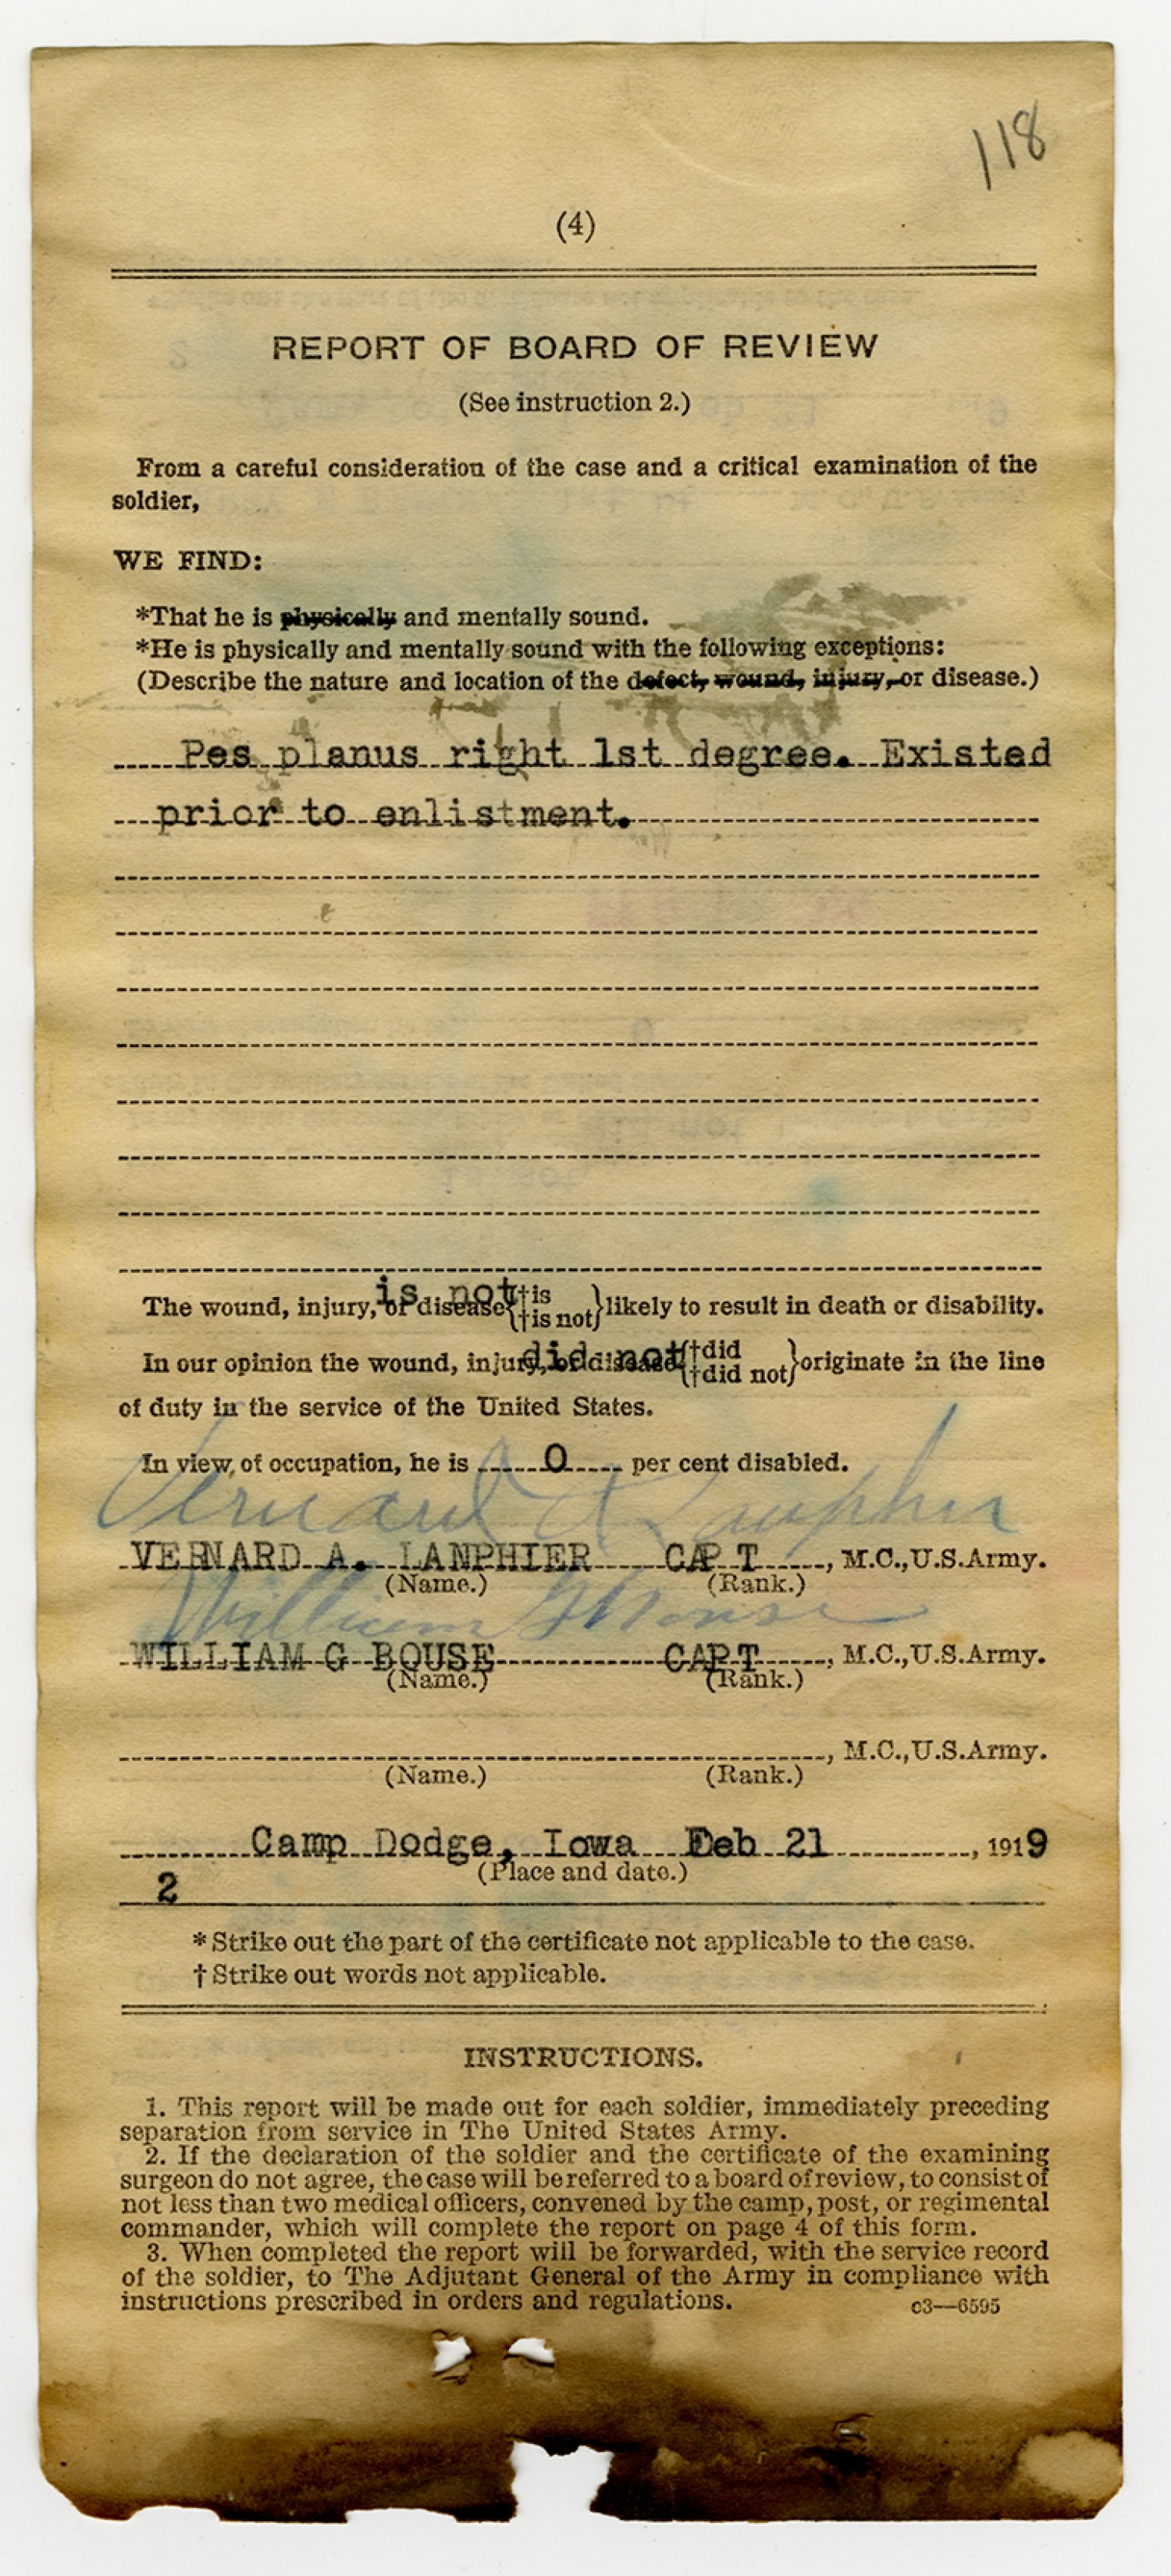 118
(4)
REPORT OF BOARD OF REVIEW
(See instruction 2.)
From a careful consideration of the case and a critical examination of the
soldier,
WE FIND:
*That he is physically and mentally sound.
*He is physically and mentally sound with the following exceptions:
(Describe the nature and location of the defect, wound, injury, or disease.)
Pes planus right 1st degree. Existed
prior to enlistment.
is not
The wound, injury, or disease {†is †is not} likely to result in death or disability.
did not
In our opinion the wound, injury, or disease {†did †did not} originate in the line
of duty in the service of the United States.
In view of occupation, he is 0 per cent disabled.
Vernard A Lanphier
VERNARD A. LANPHIER CAPT , M.C., U.S. Army.
(Name.) (Rank.)
William G
WILLIAM G BOUSE CAPT , M.C., U.S. Army.
(Name.) (Rank.)
, M.C., U.S. Army.
(Name.) (Rank.)
Camp Dodge, Iowa Feb 21 , 1919
(Place and date.)
2
* Strike out the part of the certificate not applicable to the case.
† Strike out words not applicable.
INSTRUCTIONS.
1. This report will be made out for each soldier, immediately preceding
separation from service in The United States Army.
2. If the declaration of the soldier and the certificate of the examining
surgeon do not agree, the case will be referred to a board of review, to consist of
not less than two medical officers, convened by the camp, post, or regimental
commander, which will complete the report on page 4 of this form.
3. When completed the report will be forwarded, with the service record
of the soldier, to The Adjutant General of the Army in compliance with
instructions prescribed in orders and regulations. c3—6595